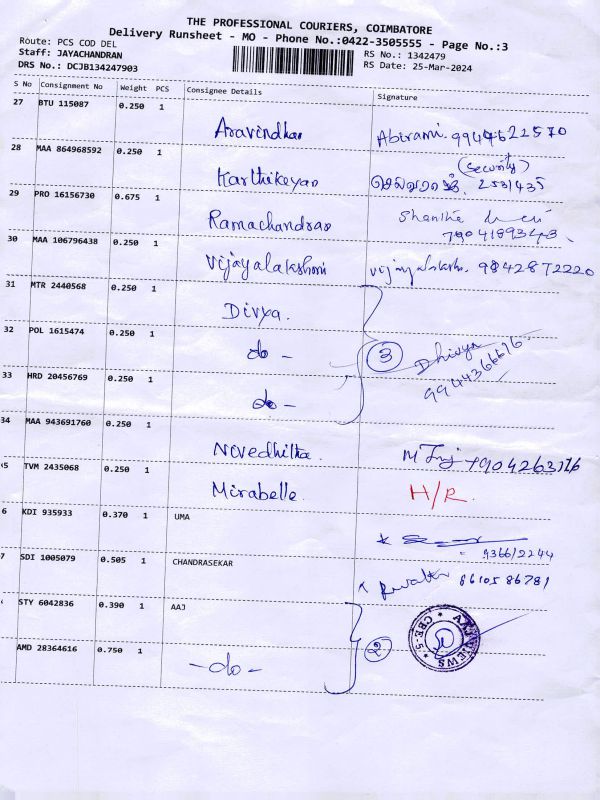 THE PROFESSIONAL COURIERS, COIMBATORE
Delivery Runsheet - MO - Phone No.:0422-3505555 - Page No.:3
Route: PCS COD DEL
Staff: JAYACHANDRAN RS No.: 1342479
DRS No.: DCJB134247903 RS Date: 25-Mar-2024
S No Consignment No Weight PCS Consignee Details Signature
27 BTU 115087 0.250 1
Aravindhan Abirami. 9944622570
28 MAA 864968592 0.250 1 (Security)
Karthikeyan 2531435
29 PRO 16156730 0.675 1
Ramachandran
7904189343
30 MAA 106796438 0.250 1
Vijayalakshmi vijayalakshmi. 9842872220
31 MTR 2440568 0.250 1
Divya.
32 POL 1615474 0.250 1
do - 3 Dhivya
9944366616
33 HRD 20456769 0.250 1
do -
34 MAA 943691760 0.250 1
Novedhitha.
35 TVM 2435068 0.250 1
Mirabelle. H/R.
6 KDI 935933 0.370 1 UMA
9366/2244
7 SDI 1005079 0.505 1 CHANDRASEKAR
8610586781
STY 6042836 0.390 1 AAJ
2 CBE-5
AMD 28364616 0.750 1
- do -